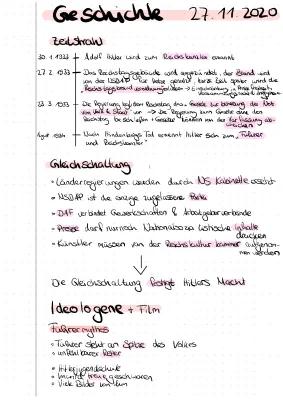 Geschichte 27.11.2020
Zeitstrahl
30.1.1933 Adolf Hitler wird zum Reichskanzler ernannt
27.2.1933 Das Reichstagsgebäude wird angezündet, der Brand wird
von der NSDAP
Reichstagsbrandverordnung
23.3.1933 Die Regierung legt dem Reichstag das "Gesetz zur Behebung der Not
von Volk & Staat" vor → Die Regierung kann Gesetze ohne den
Reichstag beschließen, "Gesetze" können von der Verfassung ab-
weichen
1934 Nach Hindenburgs Tod ernennt Hitler sich zum "Führer
und Reichskanzler"
Gleichschaltung
• Länderregierungen werden durch NS Kabinette ersetzt
• NSDAP ist die einzige zugelassene Partei
• DAF verbindet Gewerkschaften & Arbeitgeberverbände
• Presse darf nurnoch Nationalsozialistische Inhalte
drucken
• Künstler müssen von der Reichskulturkammer aufgenom-
men werden
Die Gleichschaltung festigt Hitlers Macht
Ideologene + Film
Führermythos
• Führer steht an Spitze des Volkes
• unfehlbarer Retter
• Hitlerjugendschule
• treue geschworen
• Viele Bilder von ihm